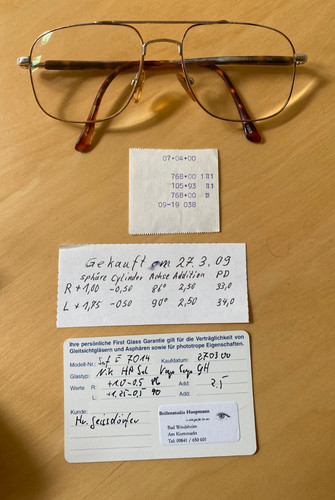 07•04•00
768•00 1
105•93
768•00
09-19 038
Gekauft am 27.3.09
sphäre Cylinder Achse Addition PD
R +1,00 -0,50 86° 2,50 33,0
L +1,75 -0,50 90° 2,50 34,0
Ihre persönliche First Glass Garantie gilt für die Verträglichkeit von
Gleitsichtgläsern und Asphären sowie für phototrope Eigenschaften.
Modell-Nr.: 7014 Kaufdatum: 270300
Glastyp: Nik HP Sol
Werte R: +1.0 -0,5 Add: 2,5
L: +1.25 -0,5 90 Add:
Kunde:
Hr.
Brillenstudio Haupmann
Bad Windsheim
Am Kornmarkt
Tel. 09841 / 650 601